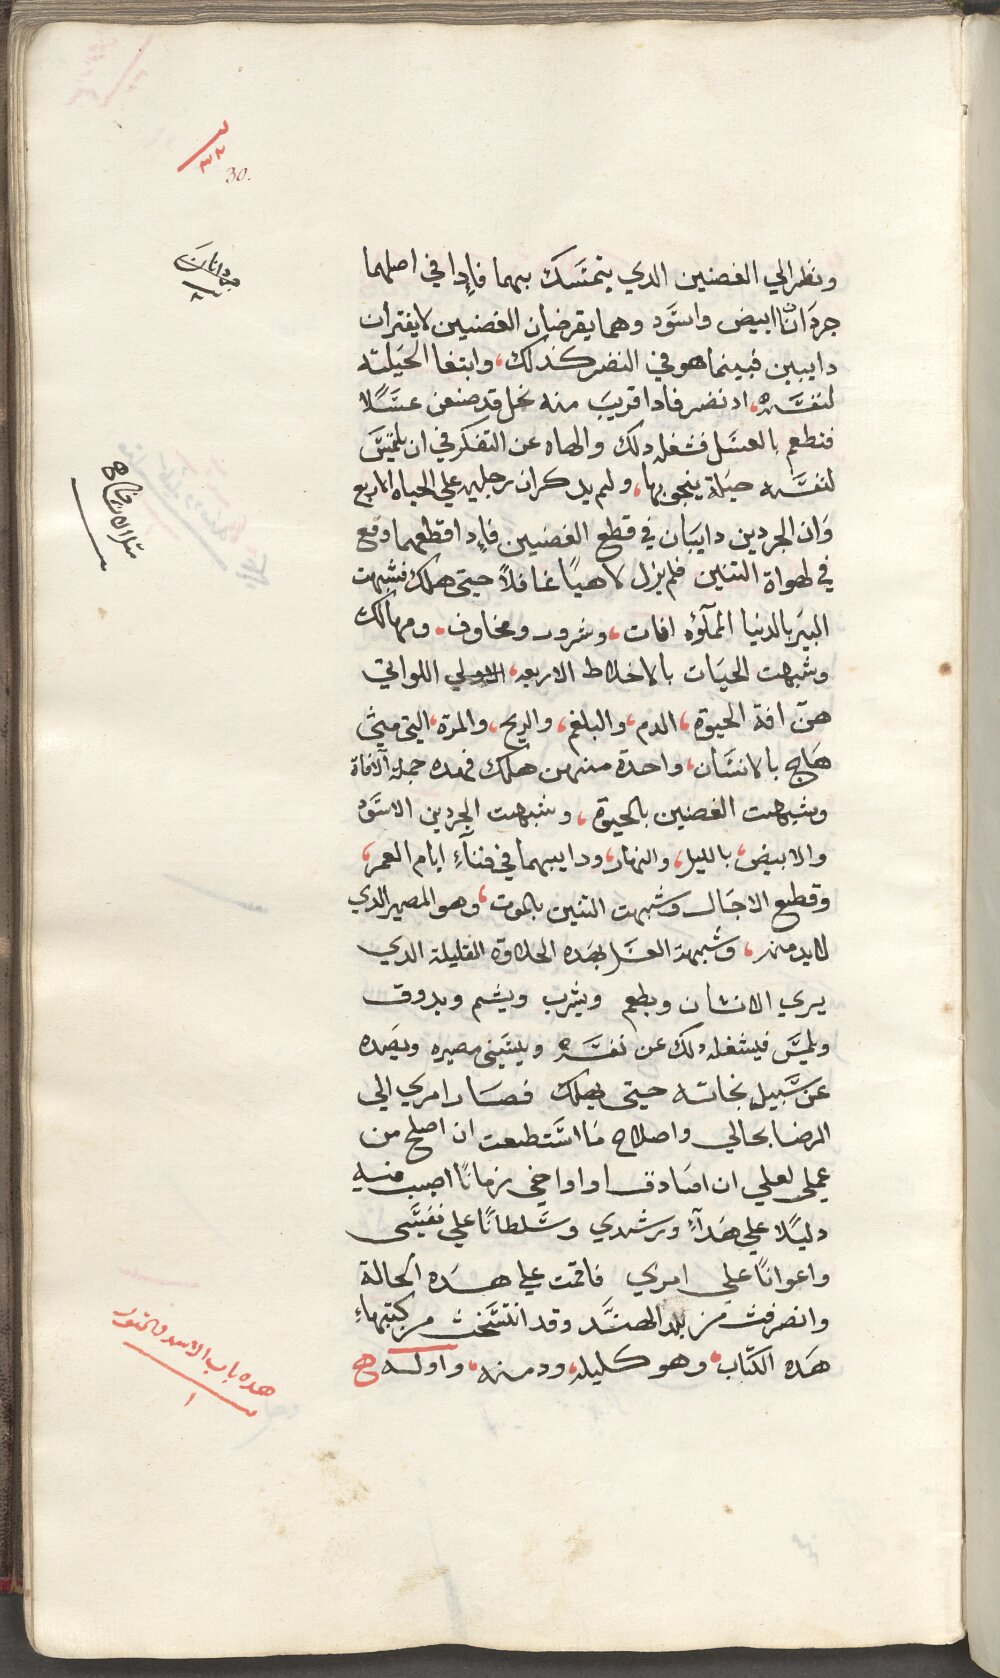 30.
جردانان
ونظر الي الغصنين الدي يتمسك بهما فإدا في اصلهما
جردَانان ابيض واسَود وهما يقرضان الغصنيين لا يفتران
داببين فبينما هو في النضر كذلك، وابتغا الحيَلته
لنفسَه، اد نضر فادا قريبَ منه نحل قد صنعن عسَلًا
فتطعم بالعسَل فشغله دلك والهاه عن التفكر في ان يلتمسَ
لنفسَه حيَلة ينجو بها، ولم يدكر ان رجليه علي الحياه الاربع
وَان الجردين دايبَان في قطع الغضنيين فإدا قطعهما وقع
في لهواة التنين فلم يزل لاهيًا غافلًا حيتى هلك فشبهت
البيَر بالدنيا المملؤه افات، وشرور ومخاوف، ومهالك
وشبهت الحيَات بالاخلاط الاربعه، اللواتي
هنّ افة الحيوة، الدم، والبلغم، والريح، والمرة، اليتى ميتى
هَاج بالانسَان، واحدة منهن هلك فهده جملة الافاة
وشبهت الغصنين بالحيَوة، وشبهت الجردين الاسوَد
والابيض، بالليل، والنهار، ودابيهما في فنآءِ ايام العمر،
وقطع الاجَال وشبهت التنين بالموت، وهو المصير الدي
لابد منه، وشبهة العسَل بهَده الحلاوة القليلة الدي
يري الانسان ويطعم ويشرب ويشم ويدوق
ويلمسَ فيشغله دلك عن نفسَه وينسَيى مصيره ويصَده
عن سَبيل نجاته حيتى يهلك فصَار امري الي
الرضا بحالي واصلاح مَا استَطعت ان اصلح من
عملي لعلي ان اصَادف او اواخي زمانًا اصيب فيه
دليَلًا علي هَدآءِ ورشدي وسَلطانًا علي نفسَيى
واعوانًا علي امري فاقمت علي هَده الحالة
وانصرفت من بلد الهنَد وقد انتسَخت من كتبهاءِ
هَده الكتاب، وهو كليله، ودمنه، واوله
هده باب الاسد والتور